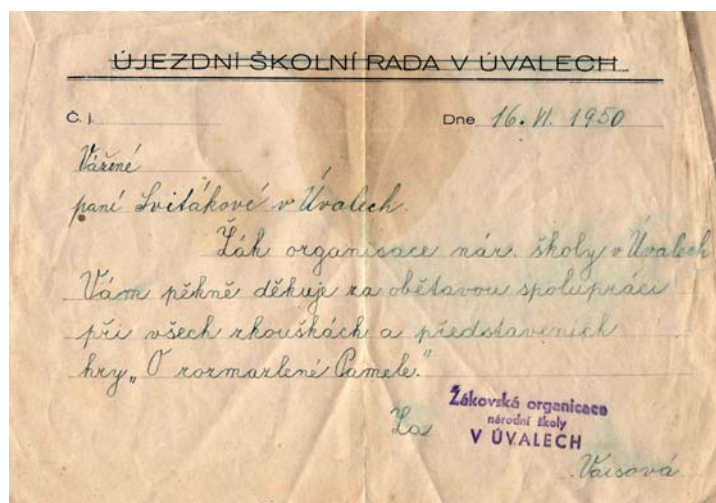 ÚJEZDNÍ ŠKOLNÍ RADA V ÚVALECH
Č. j. Dne 16. VI. 1950
Vážené
paní Svitákové v Úvalech.
Žák organisace nár. školy v Úvalech
Vám pěkně děkuje za obětavou spolupráci
při všech zkouškách a představeních
hry „O rozmarlené Pamele."
Za
Žákovská organisace
národní školy
V ÚVALECH
Vaisová